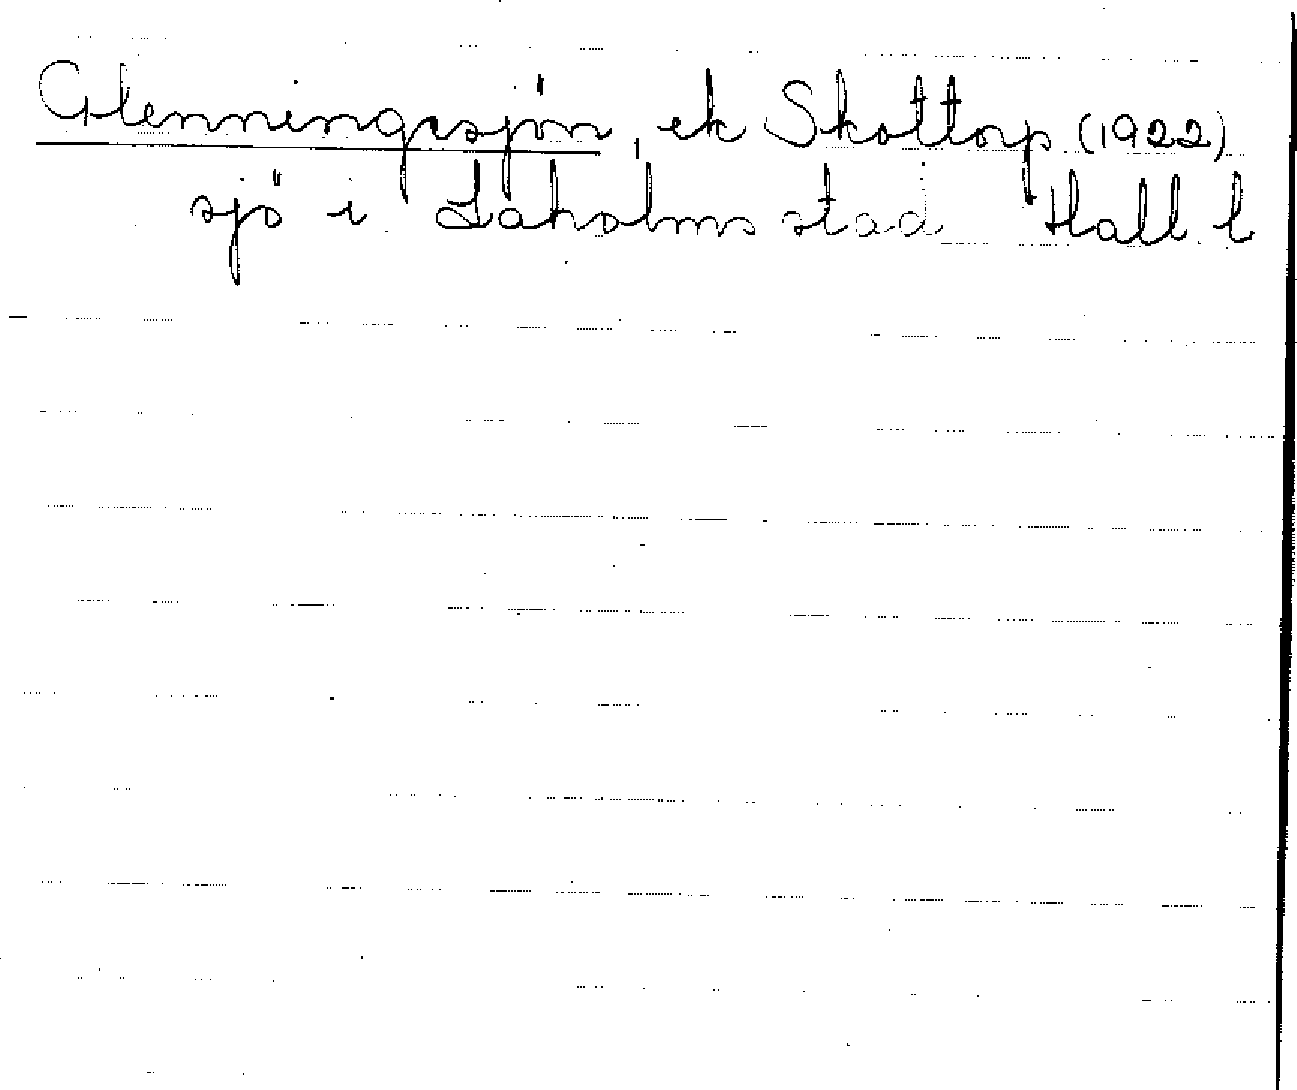 Glenningesjön, ek Skottorp (1922)
sjö i Laholms stad Hall. l